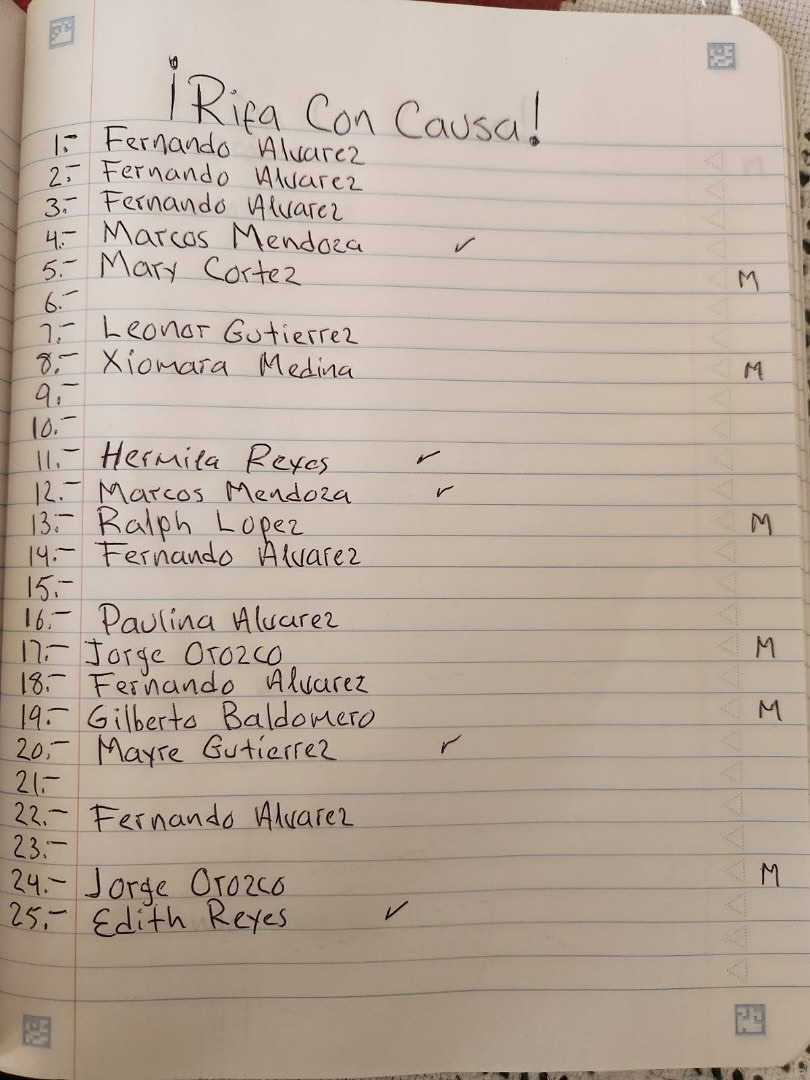 ¡Rifa Con Causa!
1.- Fernando Alvarez
2.- Fernando Alvarez
3.- Fernando Alvarez
4.- Marcos Mendoza ✓
5.- Mary Cortez M
6.-
7.- Leonor Gutierrez
8.- Xiomara Medina M
9.-
10.-
11.- Hermila Reyes ✓
12.- Marcos Mendoza ✓
13.- Ralph Lopez M
14.- Fernando Alvarez
15.-
16.- Paulina Alvarez
17.- Jorge Orozco M
18.- Fernando Alvarez
19.- Gilberto Baldomero M
20.- Mayre Gutierrez ✓
21.-
22.- Fernando Alvarez
23.-
24.- Jorge Orozco M
25.- Edith Reyes ✓